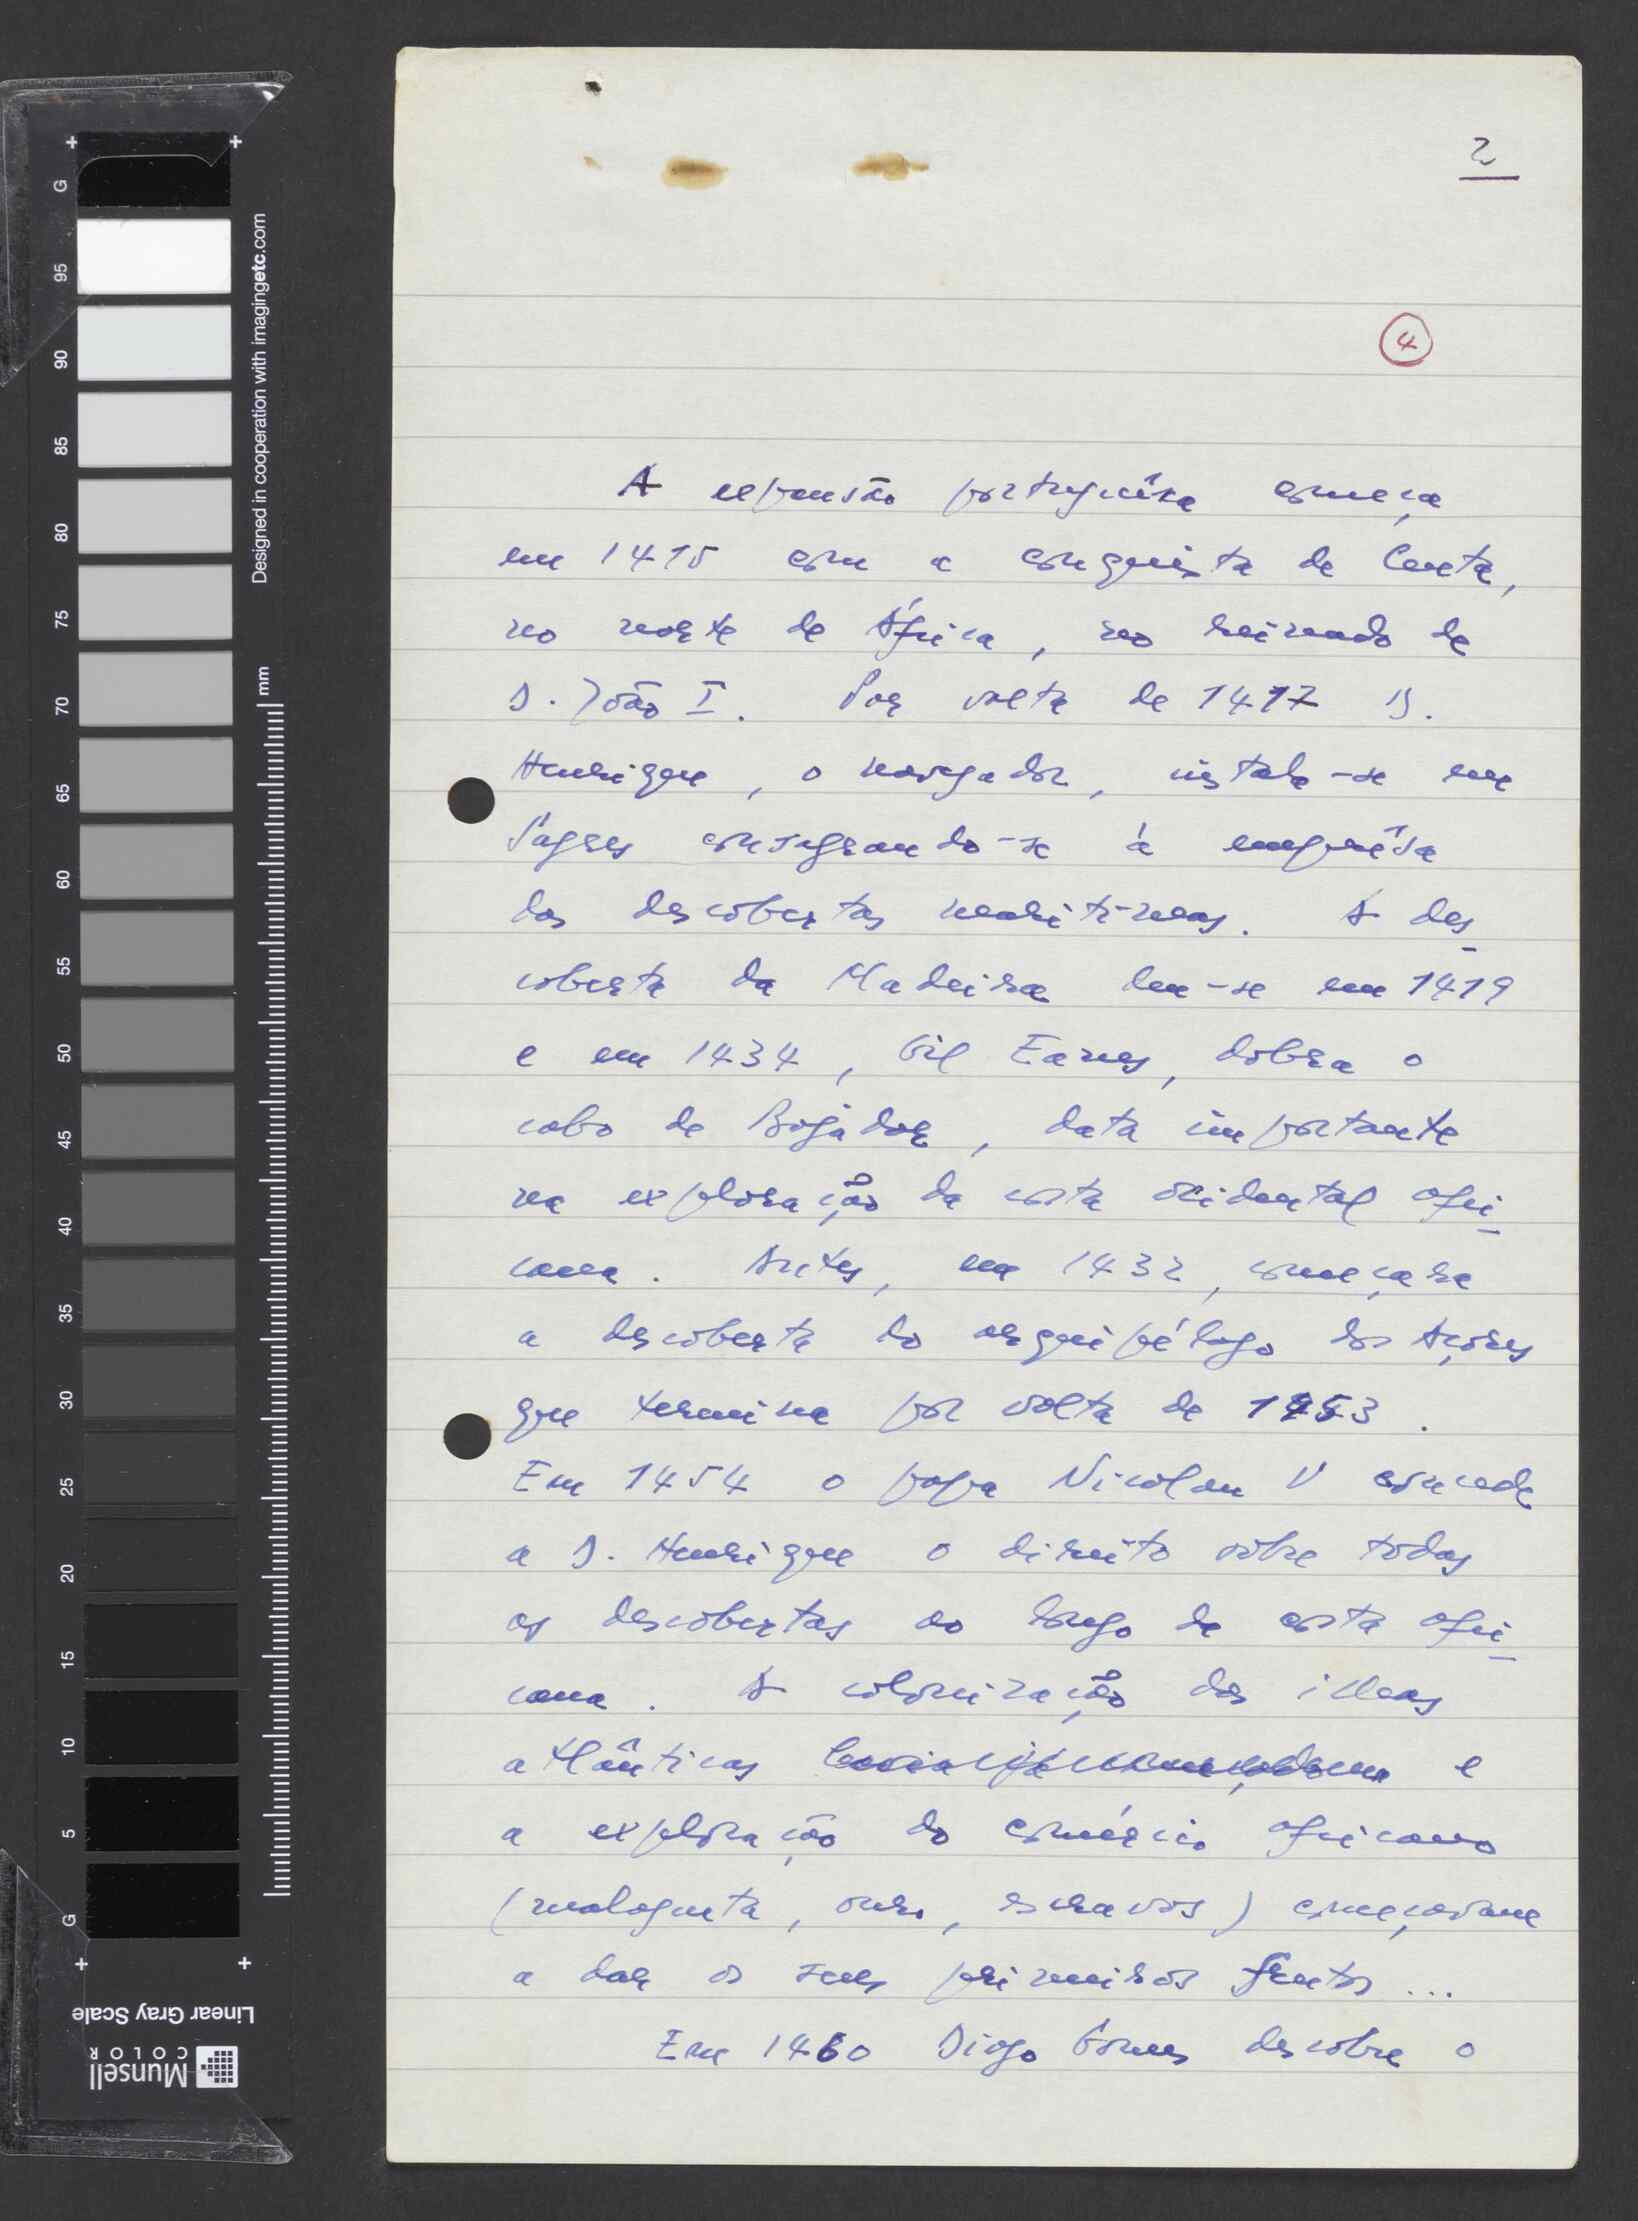 2
4
A expansão portuguêsa começa
em 1415 com a conquista de Ceuta,
no norte de África, no reinado de
D. João I. Por volta de 1417 D.
Henrique, o navegador, instala-se em
Sagres consagrando-se à emprêsa
das descobertas marítimas. A des-
coberta da Madeira deu-se em 1419
e em 1434, Gil Eanes, dobra o
cabo de Bojador, data importante
na exploração da costa ocidental afri-
cana. Antes, em 1432, começara
a descoberta do arquipélago dos Açores
que termina por volta de 1453.
Em 1454 o papa Nicolau V concede
a D. Henrique o direito sôbre todas
as descobertas ao longo da costa afri-
cana. A colonização das ilhas
atlânticas e
a exploração do comércio africano
(malagueta, ouro, escravos) começavam
a dar os seus primeiros frutos ...
Em 1460 Diogo Gomes descobre o
G 95 90 85 80 75 70 65 60 55 50 45 40 35 30 25 20 15 10 5 G
Designed in cooperation with imagingetc.com
mm
Linear Gray Scale
Munsell
COLOR